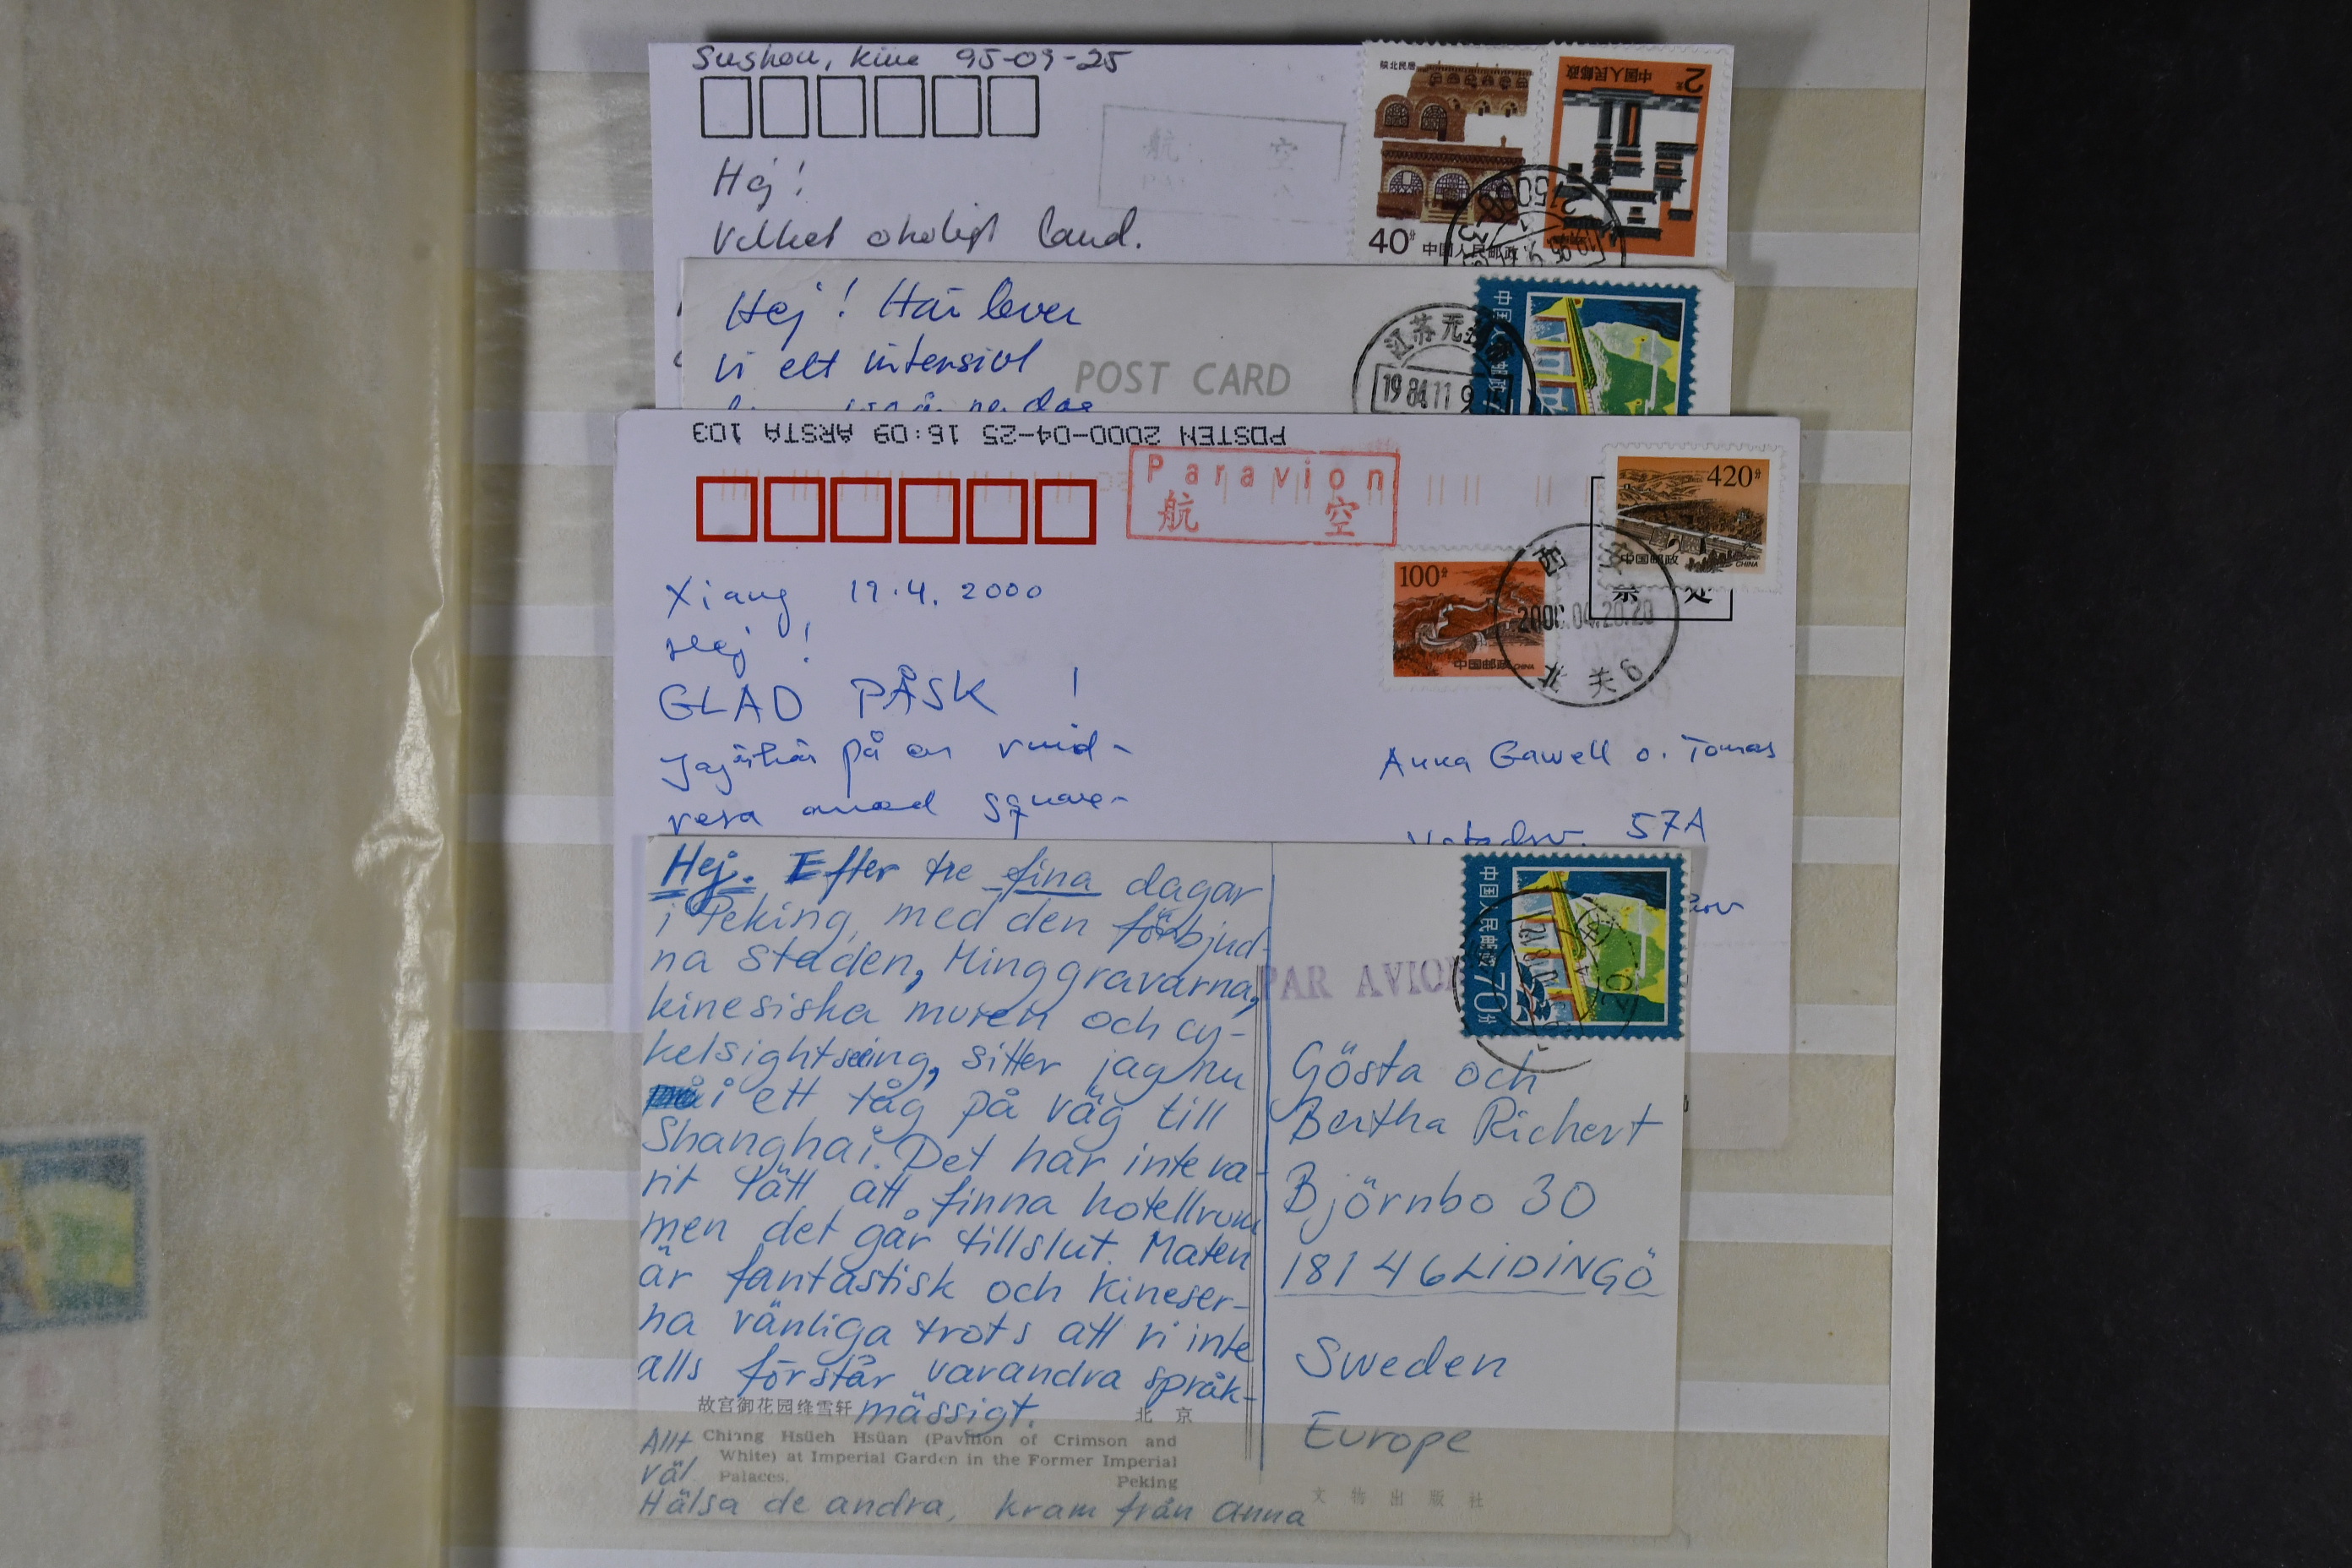 Sushou, Kina 95-09-25
航 空
陕北民居
40分 中国人民邮政
中国人民邮政 2分
215008
Hej!
Vilket land.
Hej! Här lever
vi ett intensivt
POST CARD
江苏无
1984.11.9
中国人民邮政
POSTEN 2000-04-25 16:09 ÅRSTA 103
Paravion
航 空
420分
中国邮政 CHINA
100分
中国邮政 CHINA
西安
2000.04.20.20
北关6
Xiang 19.4.2000
Hej!
GLAD PÅSK!
Jag är här på en rund-
resa med square-
Anna Gawell o. Tomas
57A
Hej. Efter tre fina dagar
i Peking, med den förbjud-
na staden, Minggravarna,
kinesiska muren och cy-
kelsightseeing, sitter jag nu
i ett tåg på väg till
Shanghai. Det har inte va-
rit lätt att finna hotellrum
men det går tillslut. Maten
är fantastisk och kineser-
na vänliga trots att vi inte
alls förstår varandra språk-
mässigt.
故宫御花园绛雪轩 北京
Chiang Hsüeh Hsüan (Pavilion of Crimson and
White) at Imperial Garden in the Former Imperial
Palaces. Peking
Allt
väl
Hälsa de andra, kram från Anna
PAR AVION
中国人民邮政 70分
Gösta och
Bertha Richert
Björnbo 30
18146 LIDINGÖ
Sweden
Europe
文物出版社